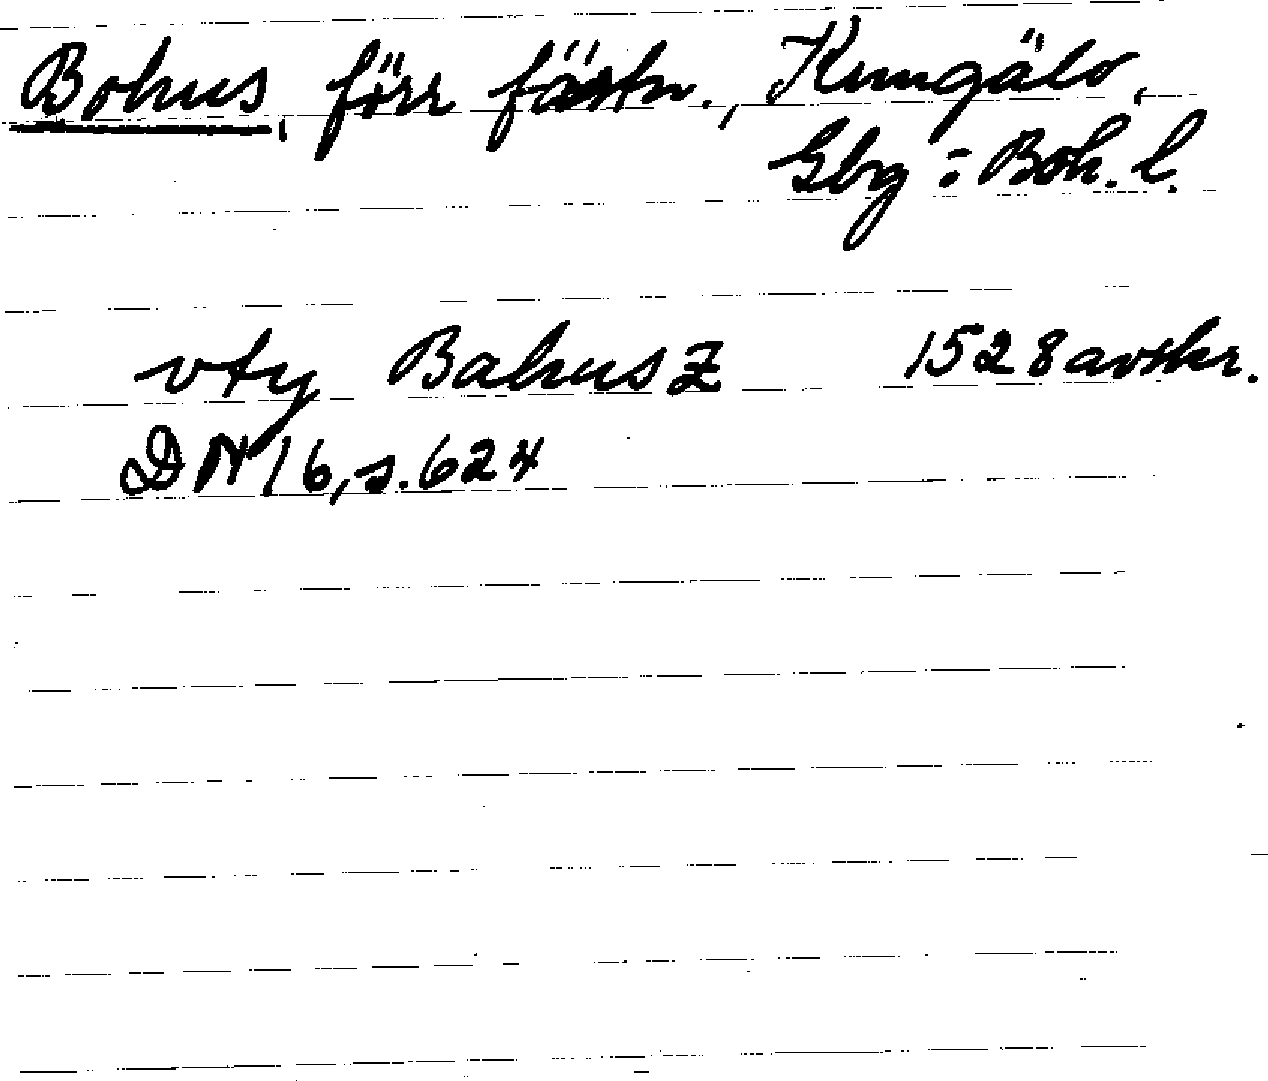 Bohus, förr fästn., Kungälv,
Gbg:Boh. l.
vty Bahusz 1528 avskr.
DN 16, s. 624